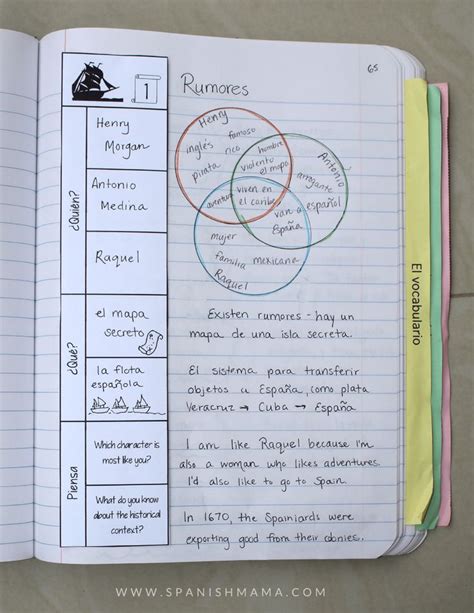 65
1
Rumores
¿Quién?
Henry
Morgan
Antonio
Medina
Raquel
Henry
famoso
inglés
rico
pirata
hombre
violento
el mapa
Antonio
arrogante
español
aventura
viven en
el caribe
van a
España
mujer
familia
mexicana
Raquel
¿Qué?
el mapa
secreto
Existen rumores - hay un
mapa de una isla secreta.
la flota
española
El sistema para transferir
objetos a España, como plata
Veracruz → Cuba → España
Piensa
Which character is
most like you?
I am like Raquel because I'm
also a woman who likes adventures.
I'd also like to go to Spain.
What do you know
about the historical
context?
In 1670, the Spainiards were
exporting good from their colonies.
El vocabulario
WWW.SPANISHMAMA.COM